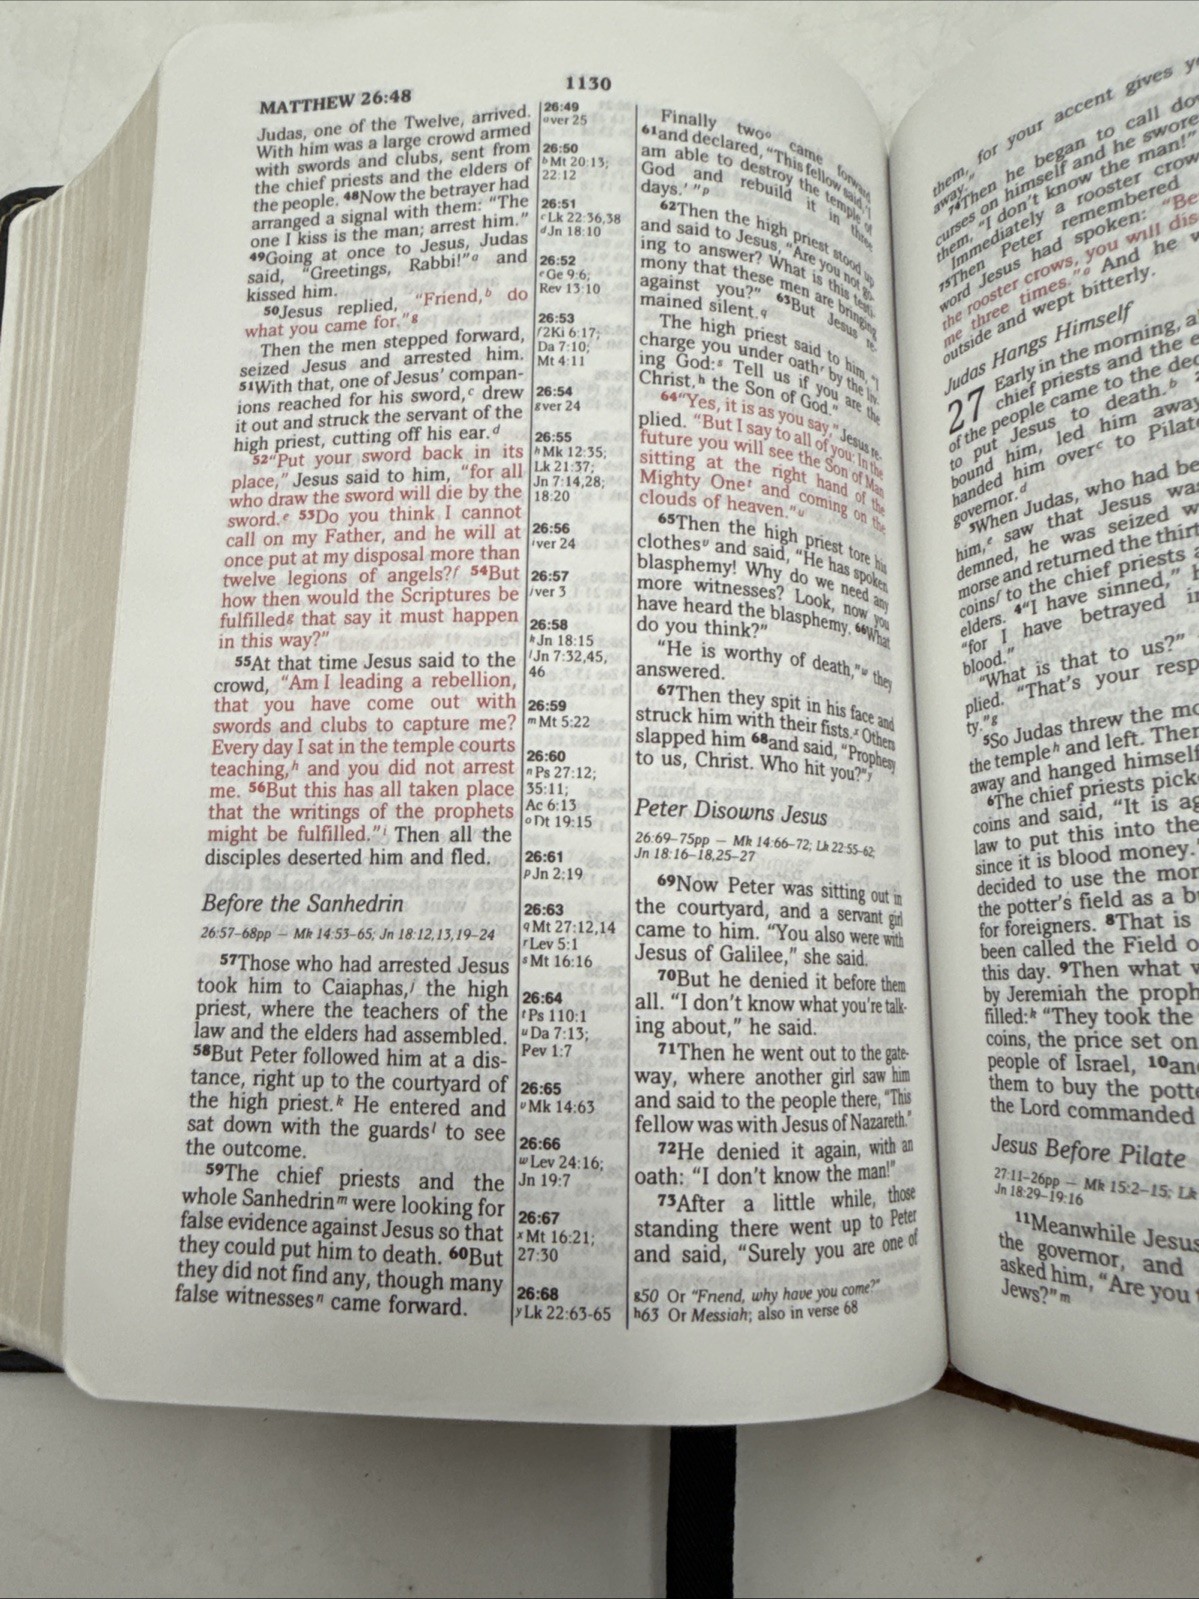 MATTHEW 26:48
1130
Judas, one of the Twelve, arrived.
With him was a large crowd armed
with swords and clubs, sent from
the chief priests and the elders of
the people. 48Now the betrayer had
arranged a signal with them: "The
one I kiss is the man; arrest him."
49Going at once to Jesus, Judas
said, "Greetings, Rabbi!"a and
kissed him.
50Jesus replied, "Friend,b do
what you came for."g
Then the men stepped forward,
seized Jesus and arrested him.
51With that, one of Jesus' compan-
ions reached for his sword,c drew
it out and struck the servant of the
high priest, cutting off his ear.d
52"Put your sword back in its
place," Jesus said to him, "for all
who draw the sword will die by the
sword.e 53Do you think I cannot
call on my Father, and he will at
once put at my disposal more than
twelve legions of angels?f 54But
how then would the Scriptures be
fulfilledg that say it must happen
in this way?"
55At that time Jesus said to the
crowd, "Am I leading a rebellion,
that you have come out with
swords and clubs to capture me?
Every day I sat in the temple courts
teaching,h and you did not arrest
me. 56But this has all taken place
that the writings of the prophets
might be fulfilled."i Then all the
disciples deserted him and fled.
Before the Sanhedrin
26:57–68pp — Mk 14:53–65; Jn 18:12,13,19–24
57Those who had arrested Jesus
took him to Caiaphas,j the high
priest, where the teachers of the
law and the elders had assembled.
58But Peter followed him at a dis-
tance, right up to the courtyard of
the high priest.k He entered and
sat down with the guardsl to see
the outcome.
59The chief priests and the
whole Sanhedrinm were looking for
false evidence against Jesus so that
they could put him to death. 60But
they did not find any, though many
false witnessesn came forward.
26:49
aver 25
26:50
bMt 20:13;
22:12
26:51
cLk 22:36,38
dJn 18:10
26:52
eGe 9:6;
Rev 13:10
26:53
f2Ki 6:17;
Da 7:10;
Mt 4:11
26:54
gver 24
26:55
hMk 12:35;
Lk 21:37;
Jn 7:14,28;
18:20
26:56
iver 24
26:57
jver 3
26:58
kJn 18:15
lJn 7:32,45,
46
26:59
mMt 5:22
26:60
nPs 27:12;
35:11;
Ac 6:13
oDt 19:15
26:61
pJn 2:19
26:63
qMt 27:12,14
rLev 5:1
sMt 16:16
26:64
tPs 110:1
uDa 7:13;
Pev 1:7
26:65
vMk 14:63
26:66
wLev 24:16;
Jn 19:7
26:67
xMt 16:21;
27:30
26:68
yLk 22:63-65
Finally twoo came forward
61and declared, "This fellow said, 'I
am able to destroy the temple of
God and rebuild it in three
days.' "p
62Then the high priest stood up
and said to Jesus, "Are you not go-
ing to answer? What is this testi-
mony that these men are bringing
against you?" 63But Jesus re-
mained silent.q
The high priest said to him, "I
charge you under oathr by the liv-
ing God:s Tell us if you are the
Christ,h the Son of God."
64"Yes, it is as you say," Jesus re-
plied. "But I say to all of you: In the
future you will see the Son of Man
sitting at the right hand of the
Mighty Onet and coming on the
clouds of heaven."u
65Then the high priest tore his
clothesv and said, "He has spoken
blasphemy! Why do we need any
more witnesses? Look, now you
have heard the blasphemy. 66What
do you think?"
"He is worthy of death,"w they
answered.
67Then they spit in his face and
struck him with their fists.x Others
slapped him 68and said, "Prophesy
to us, Christ. Who hit you?"y
Peter Disowns Jesus
26:69–75pp — Mk 14:66–72; Lk 22:55–62;
Jn 18:16–18,25–27
69Now Peter was sitting out in
the courtyard, and a servant girl
came to him. "You also were with
Jesus of Galilee," she said.
70But he denied it before them
all. "I don't know what you're talk-
ing about," he said.
71Then he went out to the gate-
way, where another girl saw him
and said to the people there, "This
fellow was with Jesus of Nazareth."
72He denied it again, with an
oath: "I don't know the man!"
73After a little while, those
standing there went up to Peter
and said, "Surely you are one of
g50 Or "Friend, why have you come?"
h63 Or Messiah; also in verse 68
them, for your accent gives
away."
74Then he began to call
curses on himself and he swore
them, "I don't know the man!"
Immediately a rooster
75Then Peter remembered
word Jesus had spoken: "Be
the rooster crows, you will dis
me three times."o And he
outside and wept bitterly.
Judas Hangs Himself
27 Early in the morning,
chief priests and the
of the people came to the
to put Jesus to death.b
bound him, led him away
handed him overc to Pilat
governor.d
3When Judas, who had be
him,e saw that Jesus was
demned, he was seized
morse and returned the thirt
coinsf to the chief priests
elders. 4"I have sinned,"
"for I have betrayed
blood."
"What is that to us?"
plied. "That's your resp
ty."g
5So Judas threw the mo
the templeh and left. Then
away and hanged himself
6The chief priests pick
coins and said, "It is ag
law to put this into the
since it is blood money.
decided to use the mon
the potter's field as a b
for foreigners. 8That is
been called the Field o
this day. 9Then what
by Jeremiah the proph
filled:k "They took the
coins, the price set on
people of Israel, 10an
them to buy the pott
the Lord commanded
Jesus Before Pilate
27:11–26pp — Mk 15:2–15; Lk
Jn 18:29–19:16
11Meanwhile Jesus
the governor, and
asked him, "Are you
Jews?"m